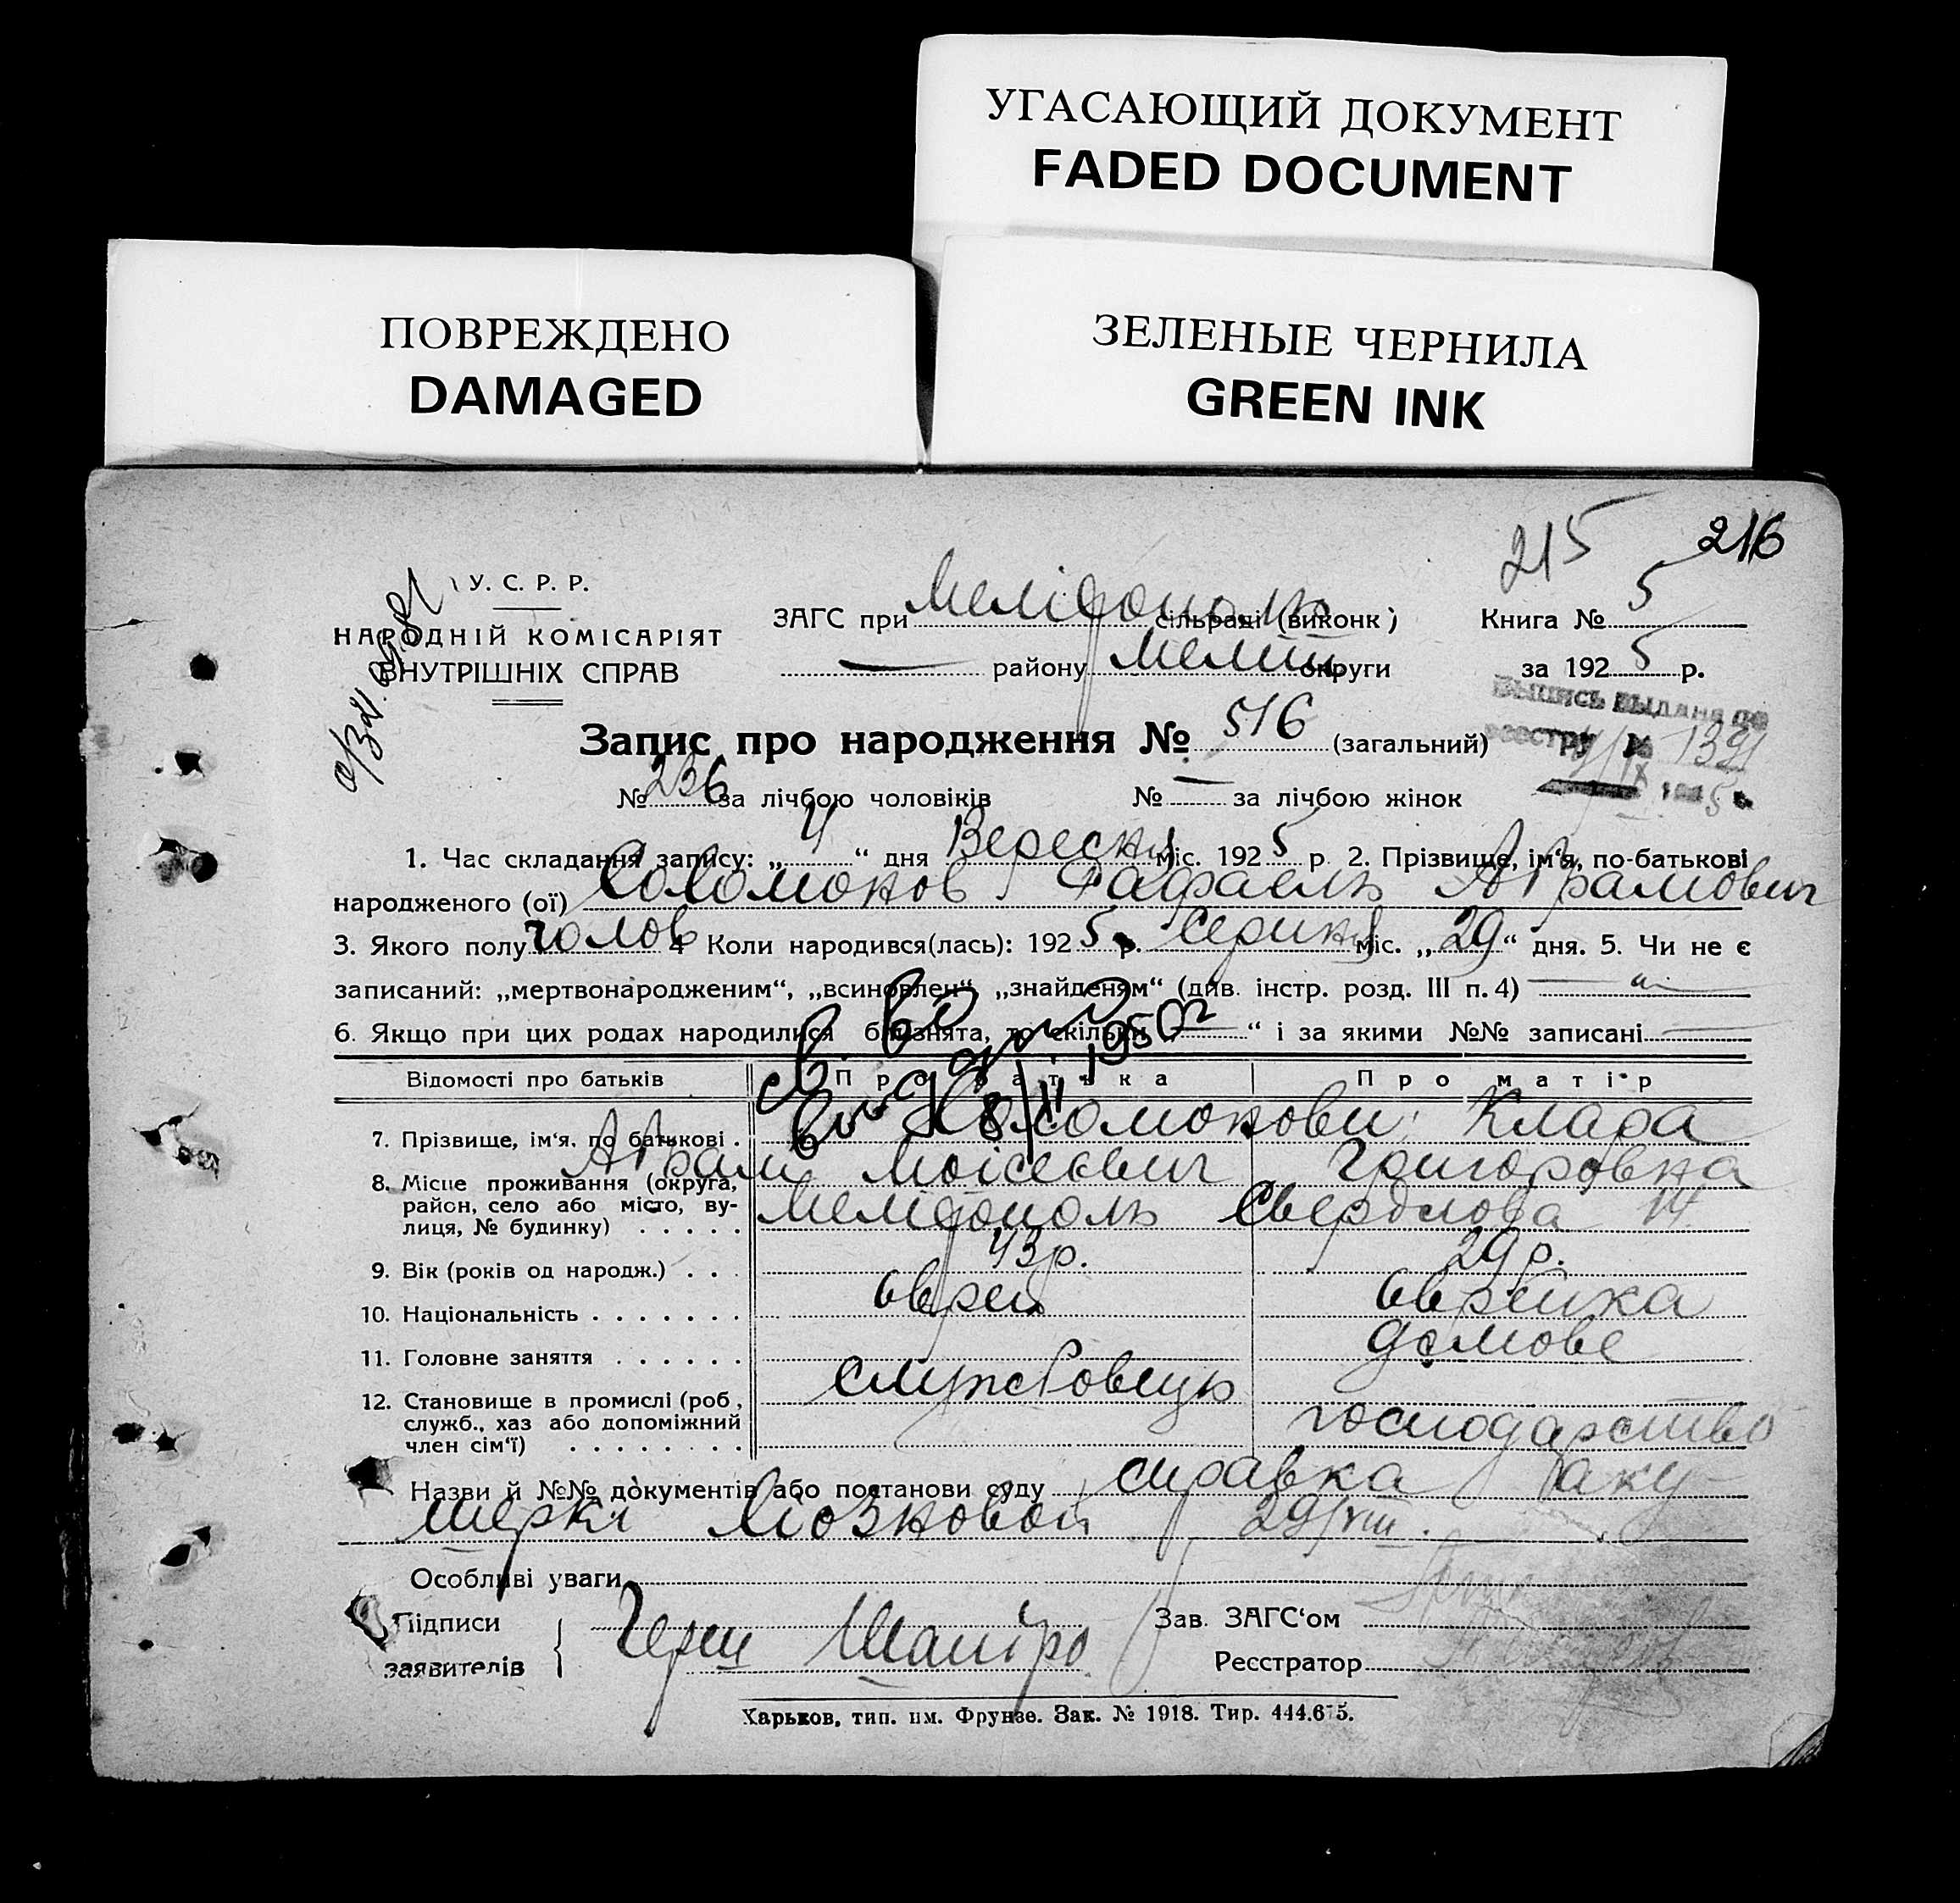 УГАСАЮЩИЙ ДОКУМЕНТ
FADED DOCUMENT
ПОВРЕЖДЕНО
DAMAGED
ЗЕЛЕНЫЕ ЧЕРНИЛА
GREEN INK
215 216
У. С. Р. Р.
НАРОДНІЙ КОМІСАРІЯТ
ВНУТРІШНІХ СПРАВ
ЗАГС при Мелітополь сільраді (виконк) Книга № 5
— району Меліт округи за 1925 р.
Выпись выдана по
реестру № 1391
Запис про народження № 516 (загальний)
№ 236 за лічбою чоловіків № — за лічбою жінок
1. Час складання запису: „4“ дня Вересня міс. 1925 р 2. Прізвище, ім'я, по-батькові
народженого (ої) Соломонов Рафаель Абрамович
3. Якого полу чолов 4 Коли народився(лась): 1925 р. Серпня міс. „29“ дня. 5. Чи не є
записаний: „мертвонародженим“, „всиновлен“ „знайденям“ (див. інстр. розд. III п. 4) —
6. Якщо при цих родах народилися близнята, то скільки — “ і за якими №№ записані —
8/II 1950
Відомості про батьків Про батька Про матір
7. Прізвище, ім'я, по батькові . Соломонови: Клара
Абрам Моісеєвич Григоровна
8. Місце проживання (округа,
район, село або місто, ву-
лиця, № будинку) . . . . . Мелітополь Свердлова 14
9. Вік (років од народж.) . . . 43 р. 29 р.
10. Національність . . . . . . . еврей еврейка
11. Головне заняття . . . . . . домове
12. Становище в промислі (роб, службовець
служб., хаз або допоміжний господарство
член сім'ї) . . . . . . . .
Назви й №№ документів або постанови суду справка аку-
шерки Лі
29/VIII.
Особливі уваги
Підписи
заявителів { Герш Шапіро
Зав. ЗАГС'ом
Реєстратор
Харьков, тип. им. Фрунзе. Зак. № 1918. Тир. 444.675.